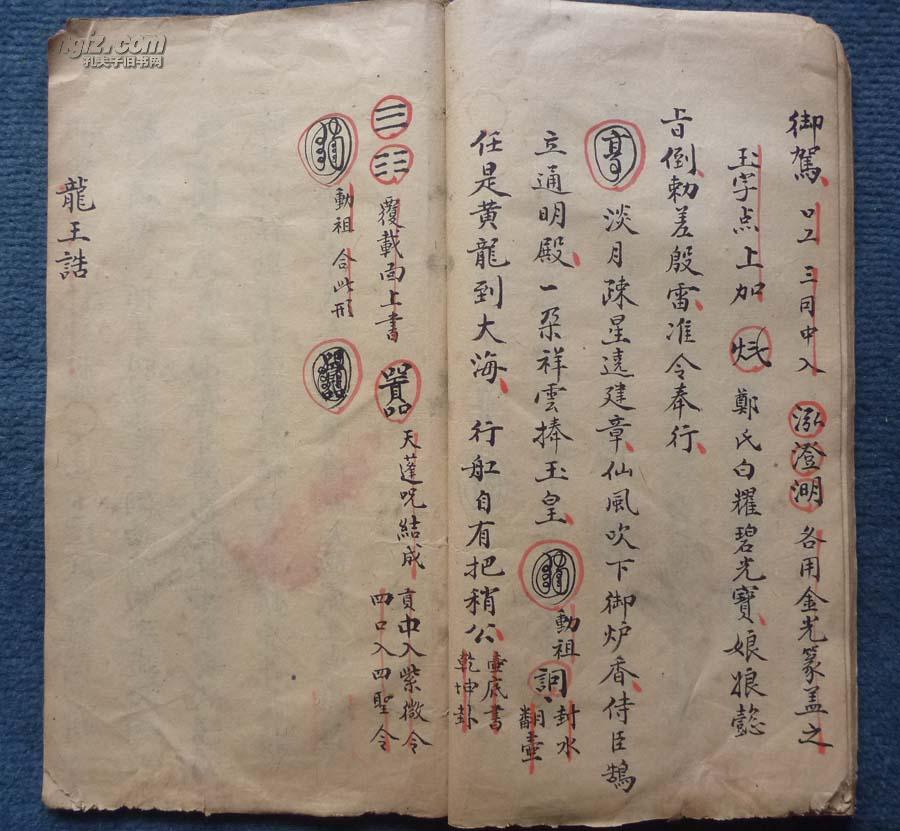 御駕 口工 三目中入 泓澄湖 各用金光篆盖之
玉字点上加 鄭氏白耀碧光寶娘娘懿
旨倒勅差殷雷准令奉行
淡月疎星遶建章仙風吹下御炉香侍臣鵠
立通明殿一朶祥雲捧玉皇 動祖 詞 封水 翻壷
任是黄龍到大海 行舡自有把稍公 壷底書 乾坤卦
三 覆載面上書 天蓬呪結成 貢中入紫微令 四口入四聖令
動祖 合此形
龍王誥
jgiz.com
孔夫子旧书网